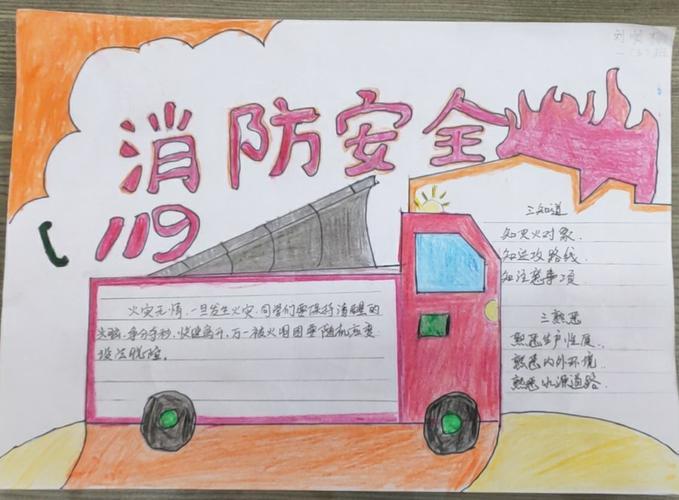 消防安全
119
火灾无情,一旦发生火灾,同学们要保持清醒的
头脑,争分夺秒,快速离开,万一被火围困要随机应变
设法脱险。
三知道
知灭火对象.
知进攻路线.
知注意事项
三熟悉
熟悉生产性质.
熟悉内外环境
熟悉水源道路.